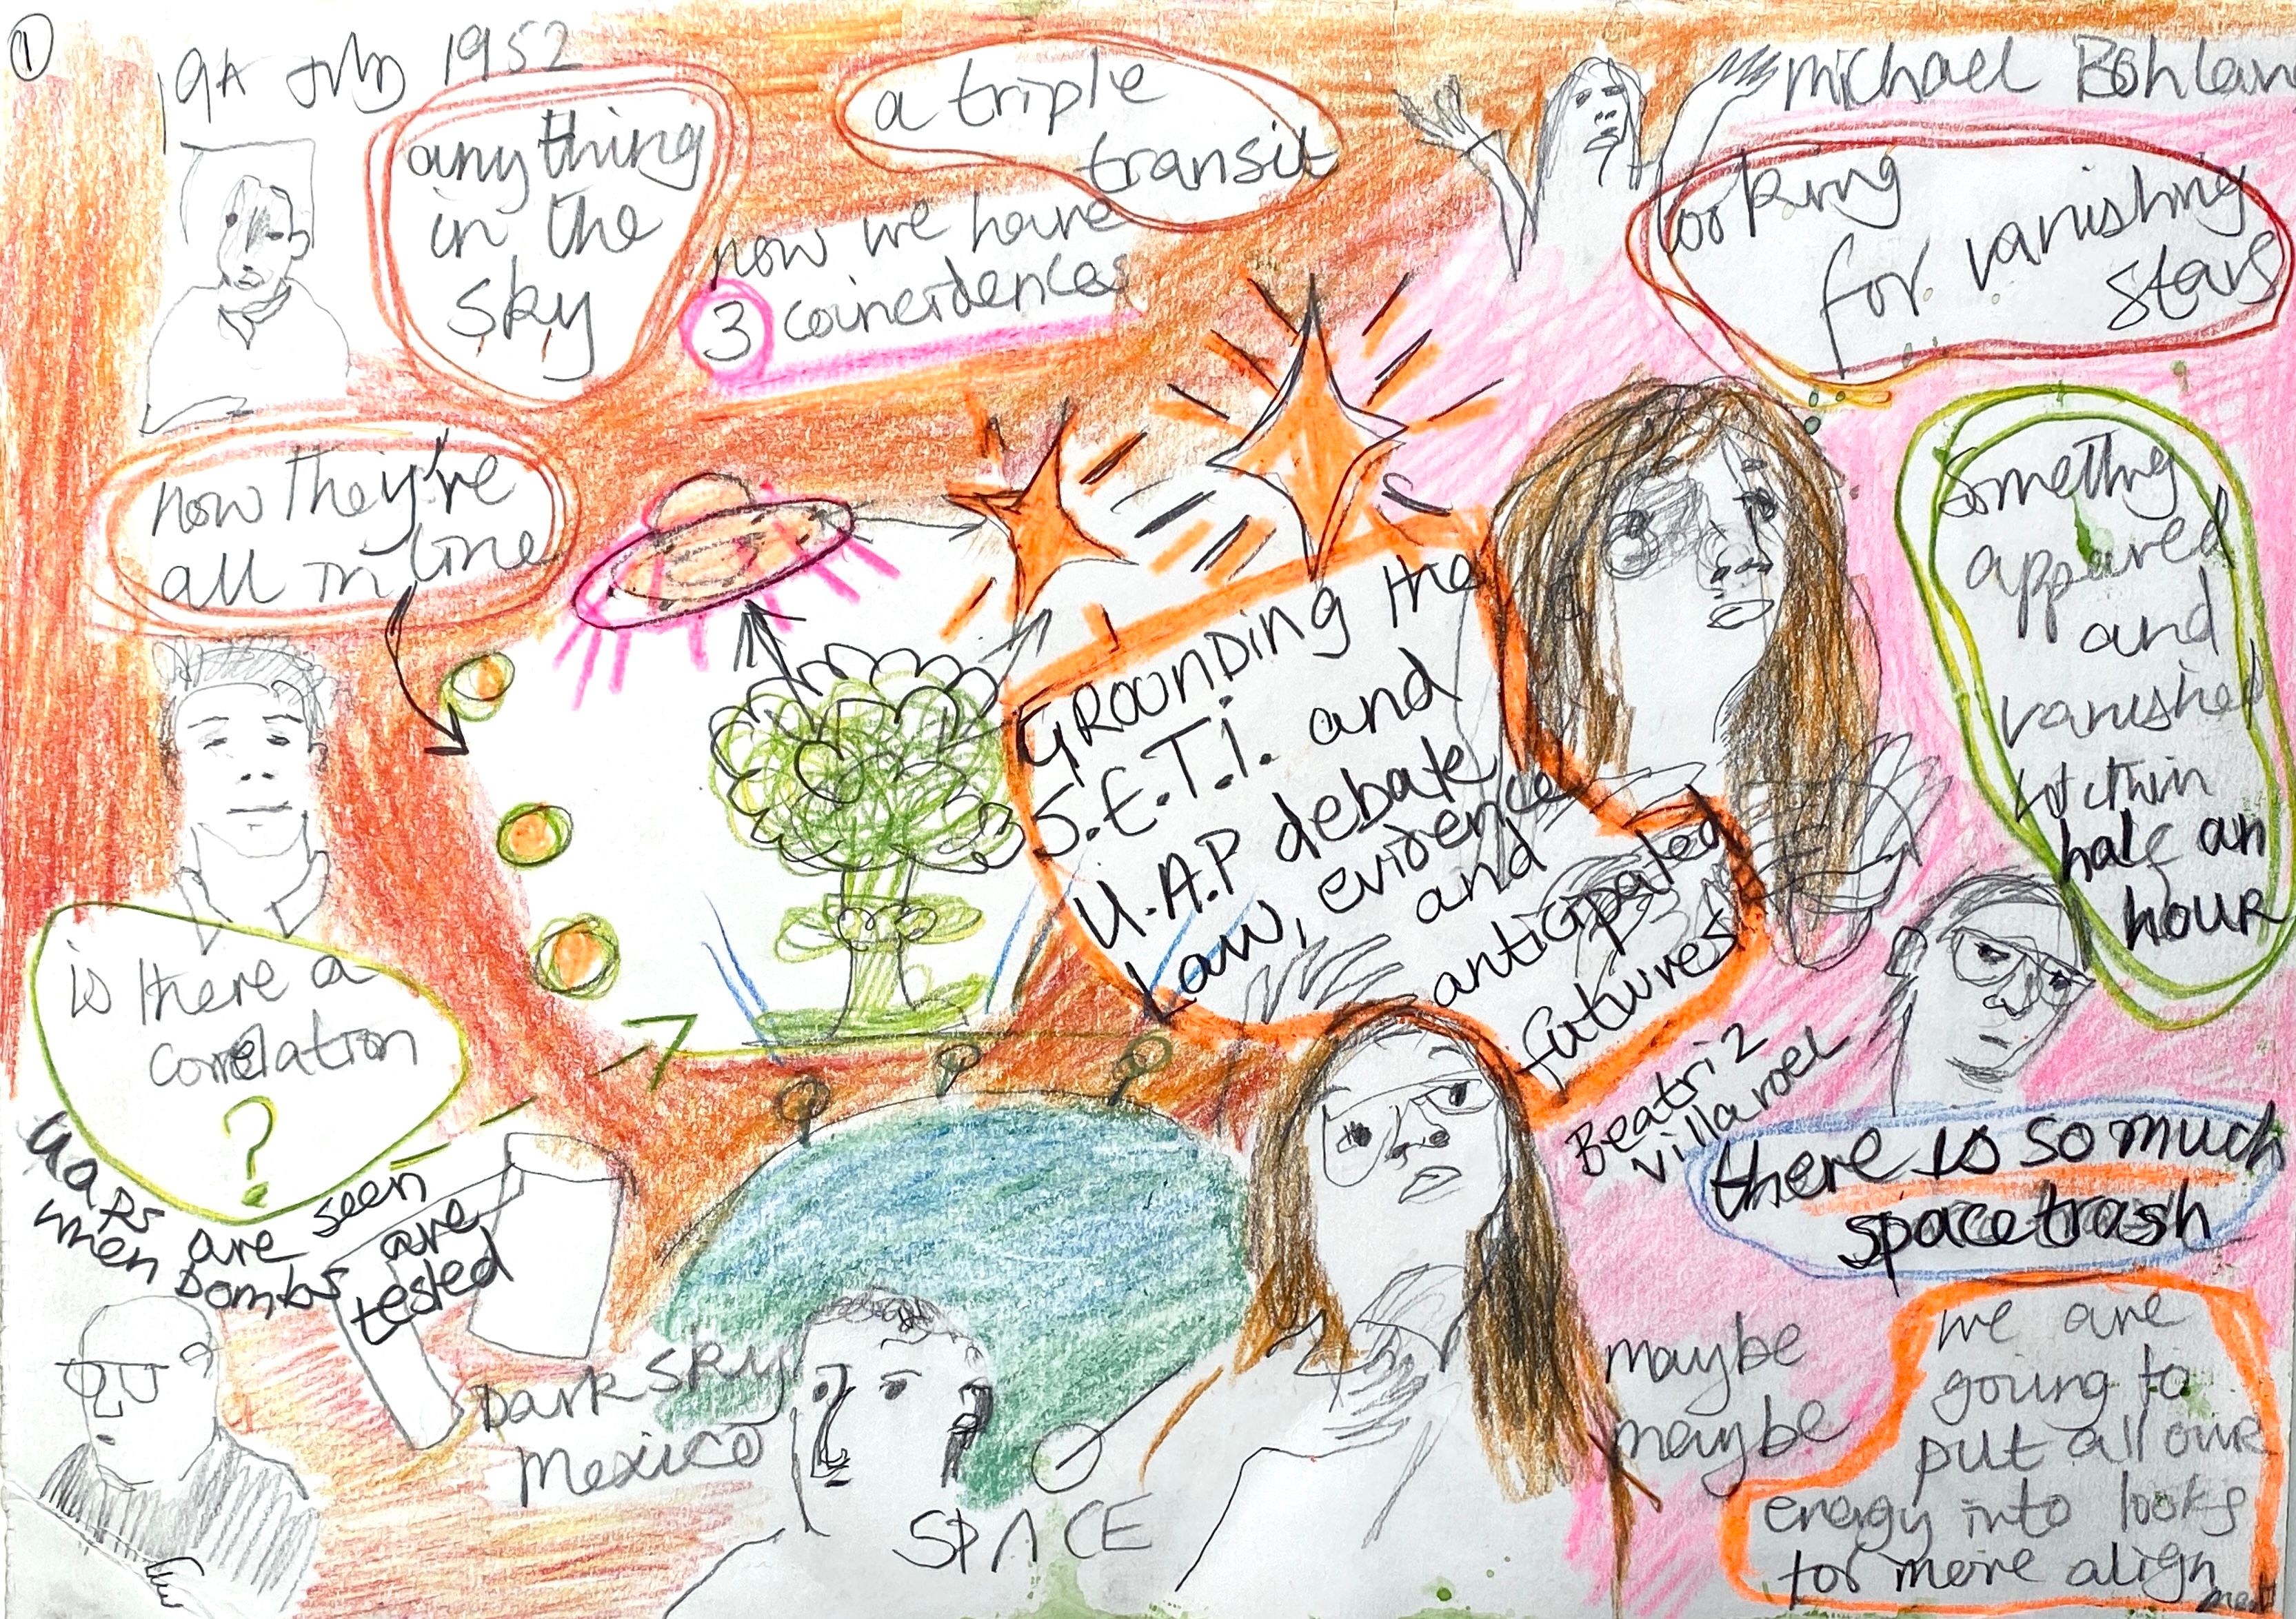 1
July 1952
anything
in the
sky
a triple
transit
now we have
3 coinerdences
Michael Bohlan
looking
for vanishing
stars
now they're
all in line
Something
appared
and
vanished
within
half an
hour
GROUNDING the
S.E.T.I. and
U.A.P debate
Law, evidence
and
anticipated
futures
is there a
correlation
?
UAPs are seen
when bombs are
tested
Beatriz
Villaroel
there is so much
space trash
Dark sky
Mexico
SPACE
maybe
maybe
we are
going to
put all our
energy into looks
for more align
ment